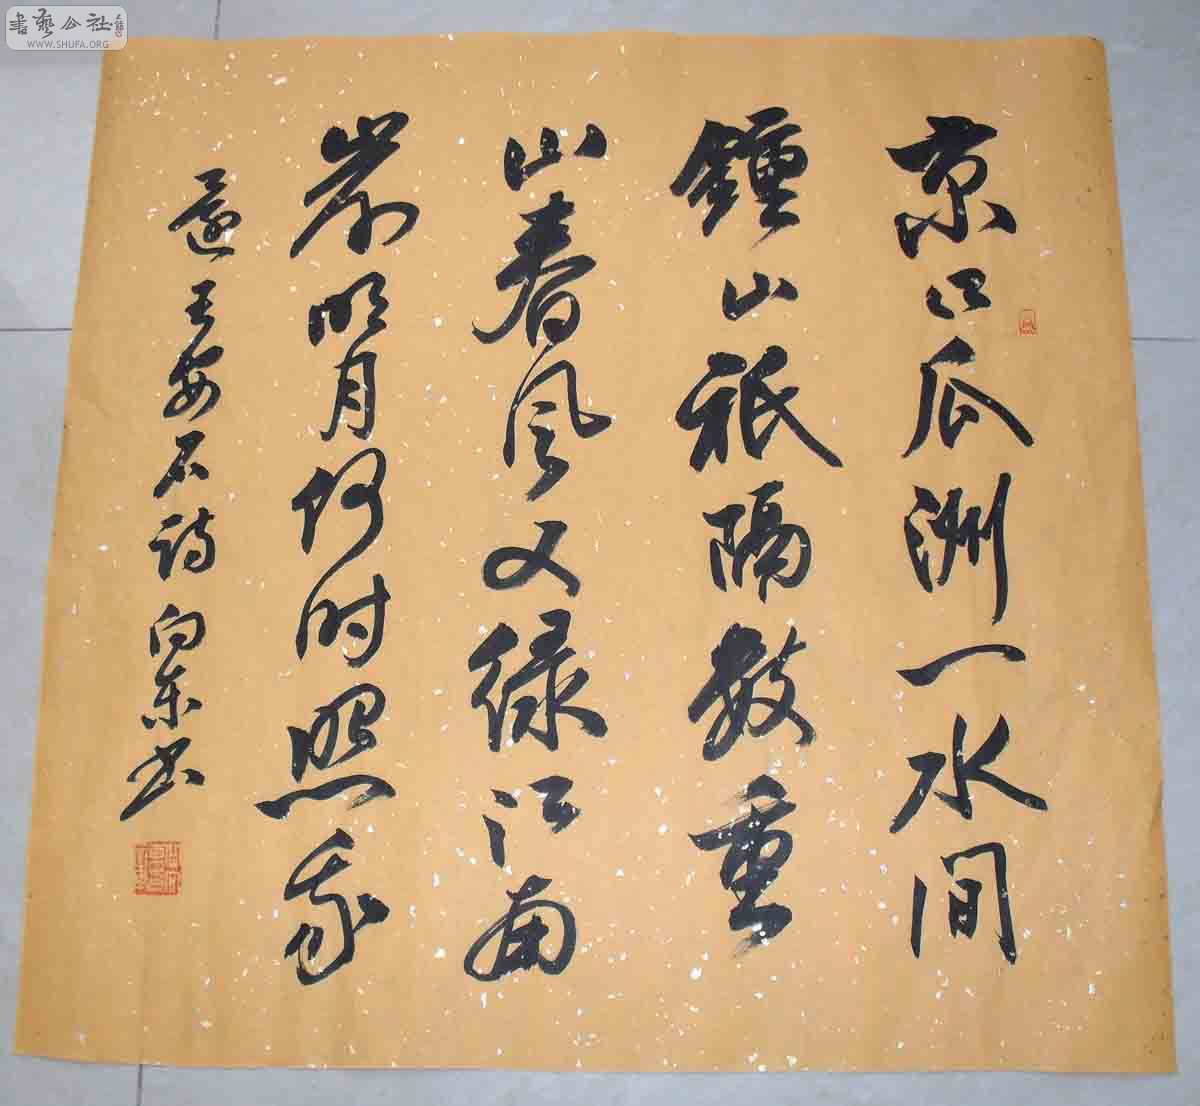 京口瓜洲一水間
鍾山祇隔数重
山春风又绿江南
岸明月何时照我
還王安石诗向东书
書藝公社
WWW.SHUFA.ORG